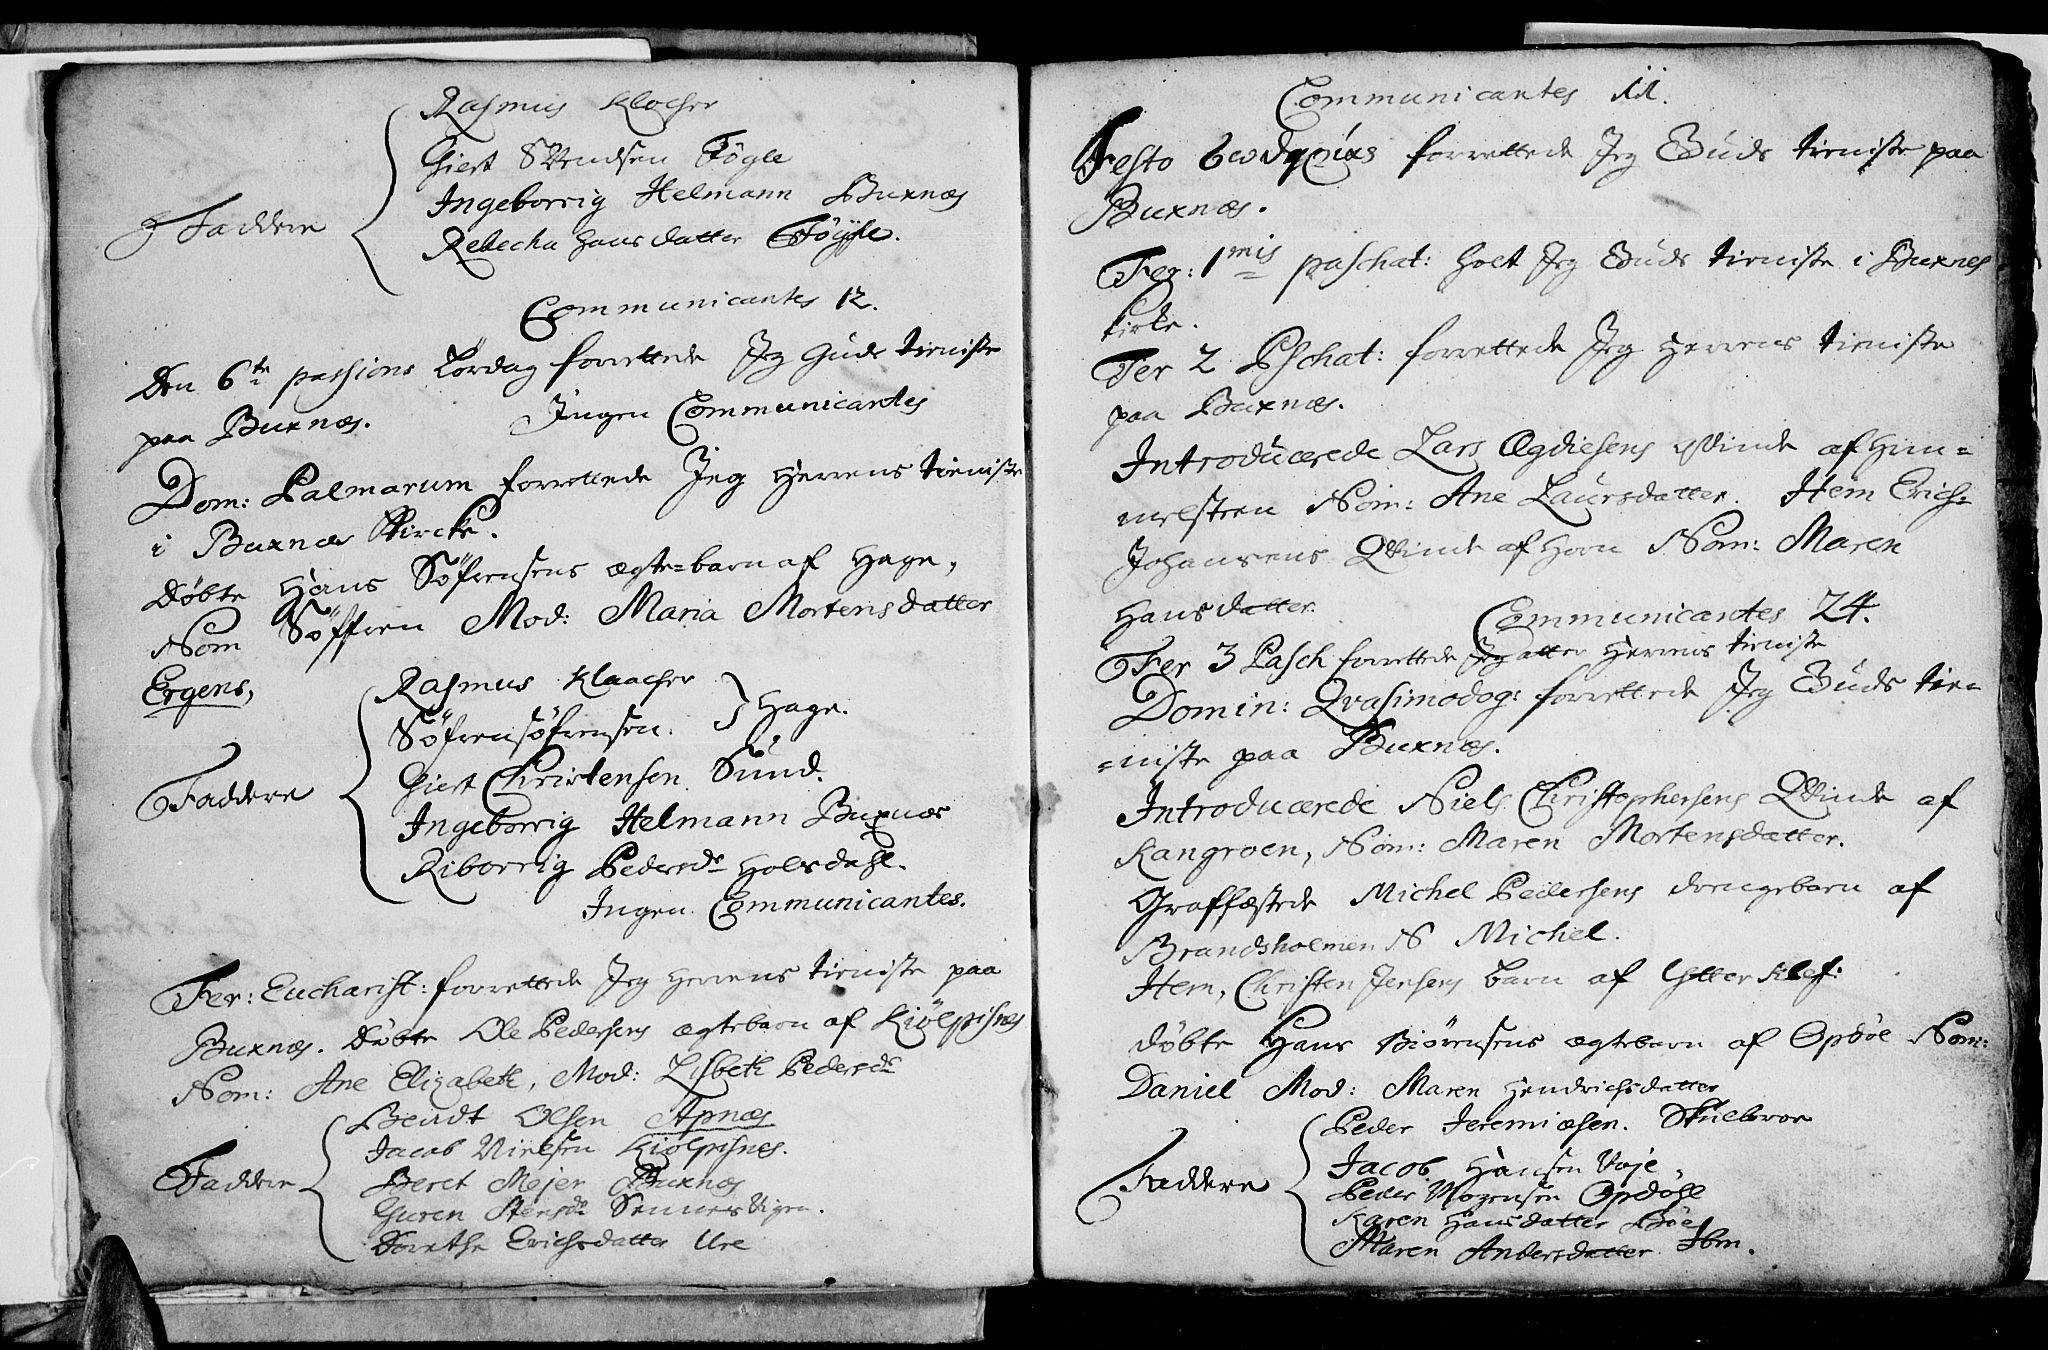 Rasmus Klocher
Giert Svendsen Føgle
Ingeborrig Helmann Buxnæs
Faddere
Rebecha hansdatter Føygle.
Communicantes 12.
Den 6te passions Lørdag forrettede Jeg Guds tieniste
paa Buxnæs. Ingen Communicantes
Dom: Palmarum forrettede Jeg Herrens tieniste
i Buxnæs Kircke.
Døbte Hans Søfrensens ægte=barn af Hage,
Nom Søffren Mod: Maria Mortensdatter
Ergens,
Rasmus Klaacher
Søfrensøfrensen. Hage.
Giert Christensen Sund.
Faddere
Ingeborrig Helmann Buxnæs
Riborrig Pedersdr Holsdahl.
Ingen Communicantes.
Fer: Eucharist: forrettede Jeg Herrens tieniste paa
Buxnæs. Døbte Ole Pedersens ægtebarn af Kiølpisnes
Nom: Ane Elizabeth, Mod: Lisbeth Pedersdr
Bendt Olsen Apnæs
Jacob Nielsen Kiølpisnes.
Faddere
Beret Mejer Buxnæs
Guren Stensdr Sennesvigen.
Dorethe Erichsdatter Ure
Communicantes 11.
Festo forrettede Jeg Guds tieniste paa
Buxnæs.
Fer: 1mis paschat: holt Jeg Guds tieniste i Buxnes
kirke.
Fer 2 Pschat: forrettede Jeg Herrens tieniste
paa Buxnæs.
Introducærede Lars Ægdiesens Qvinde af Him=
melsteen Nom: Ane Laursdatter. Item Erich=
Johansens Qvinde af Horn Nom: Maren
Hansdatter.
Communicantes 24.
Fer 3 Pasch forrettede Jeg atter Herrens tieniste
Domin: Qvasimodog: forrettede Jeg Guds tie=
=niste paa Buxnæs.
Introducærede Niels Christophersens Qvinde af
Kangroen, Nom: Maren Mortensdatter.
Graffæstede Michel Pedersens drengebarn af
Brandsholmen N Michel.
Item, Christen Jensens barn af Ytter Klef:
Døbte Hans Biørensens ægtebarn af Opdøe Nom:
Daniel Mod: Maren Hendrichsdatter
Peder Jeremiæsen. Skulbroe
Jacob Hansen Voje,
Faddere
Peder Mogensen Opdøhl
Karen Hansdatter Bøe
Maren Andersdatter Ibm.